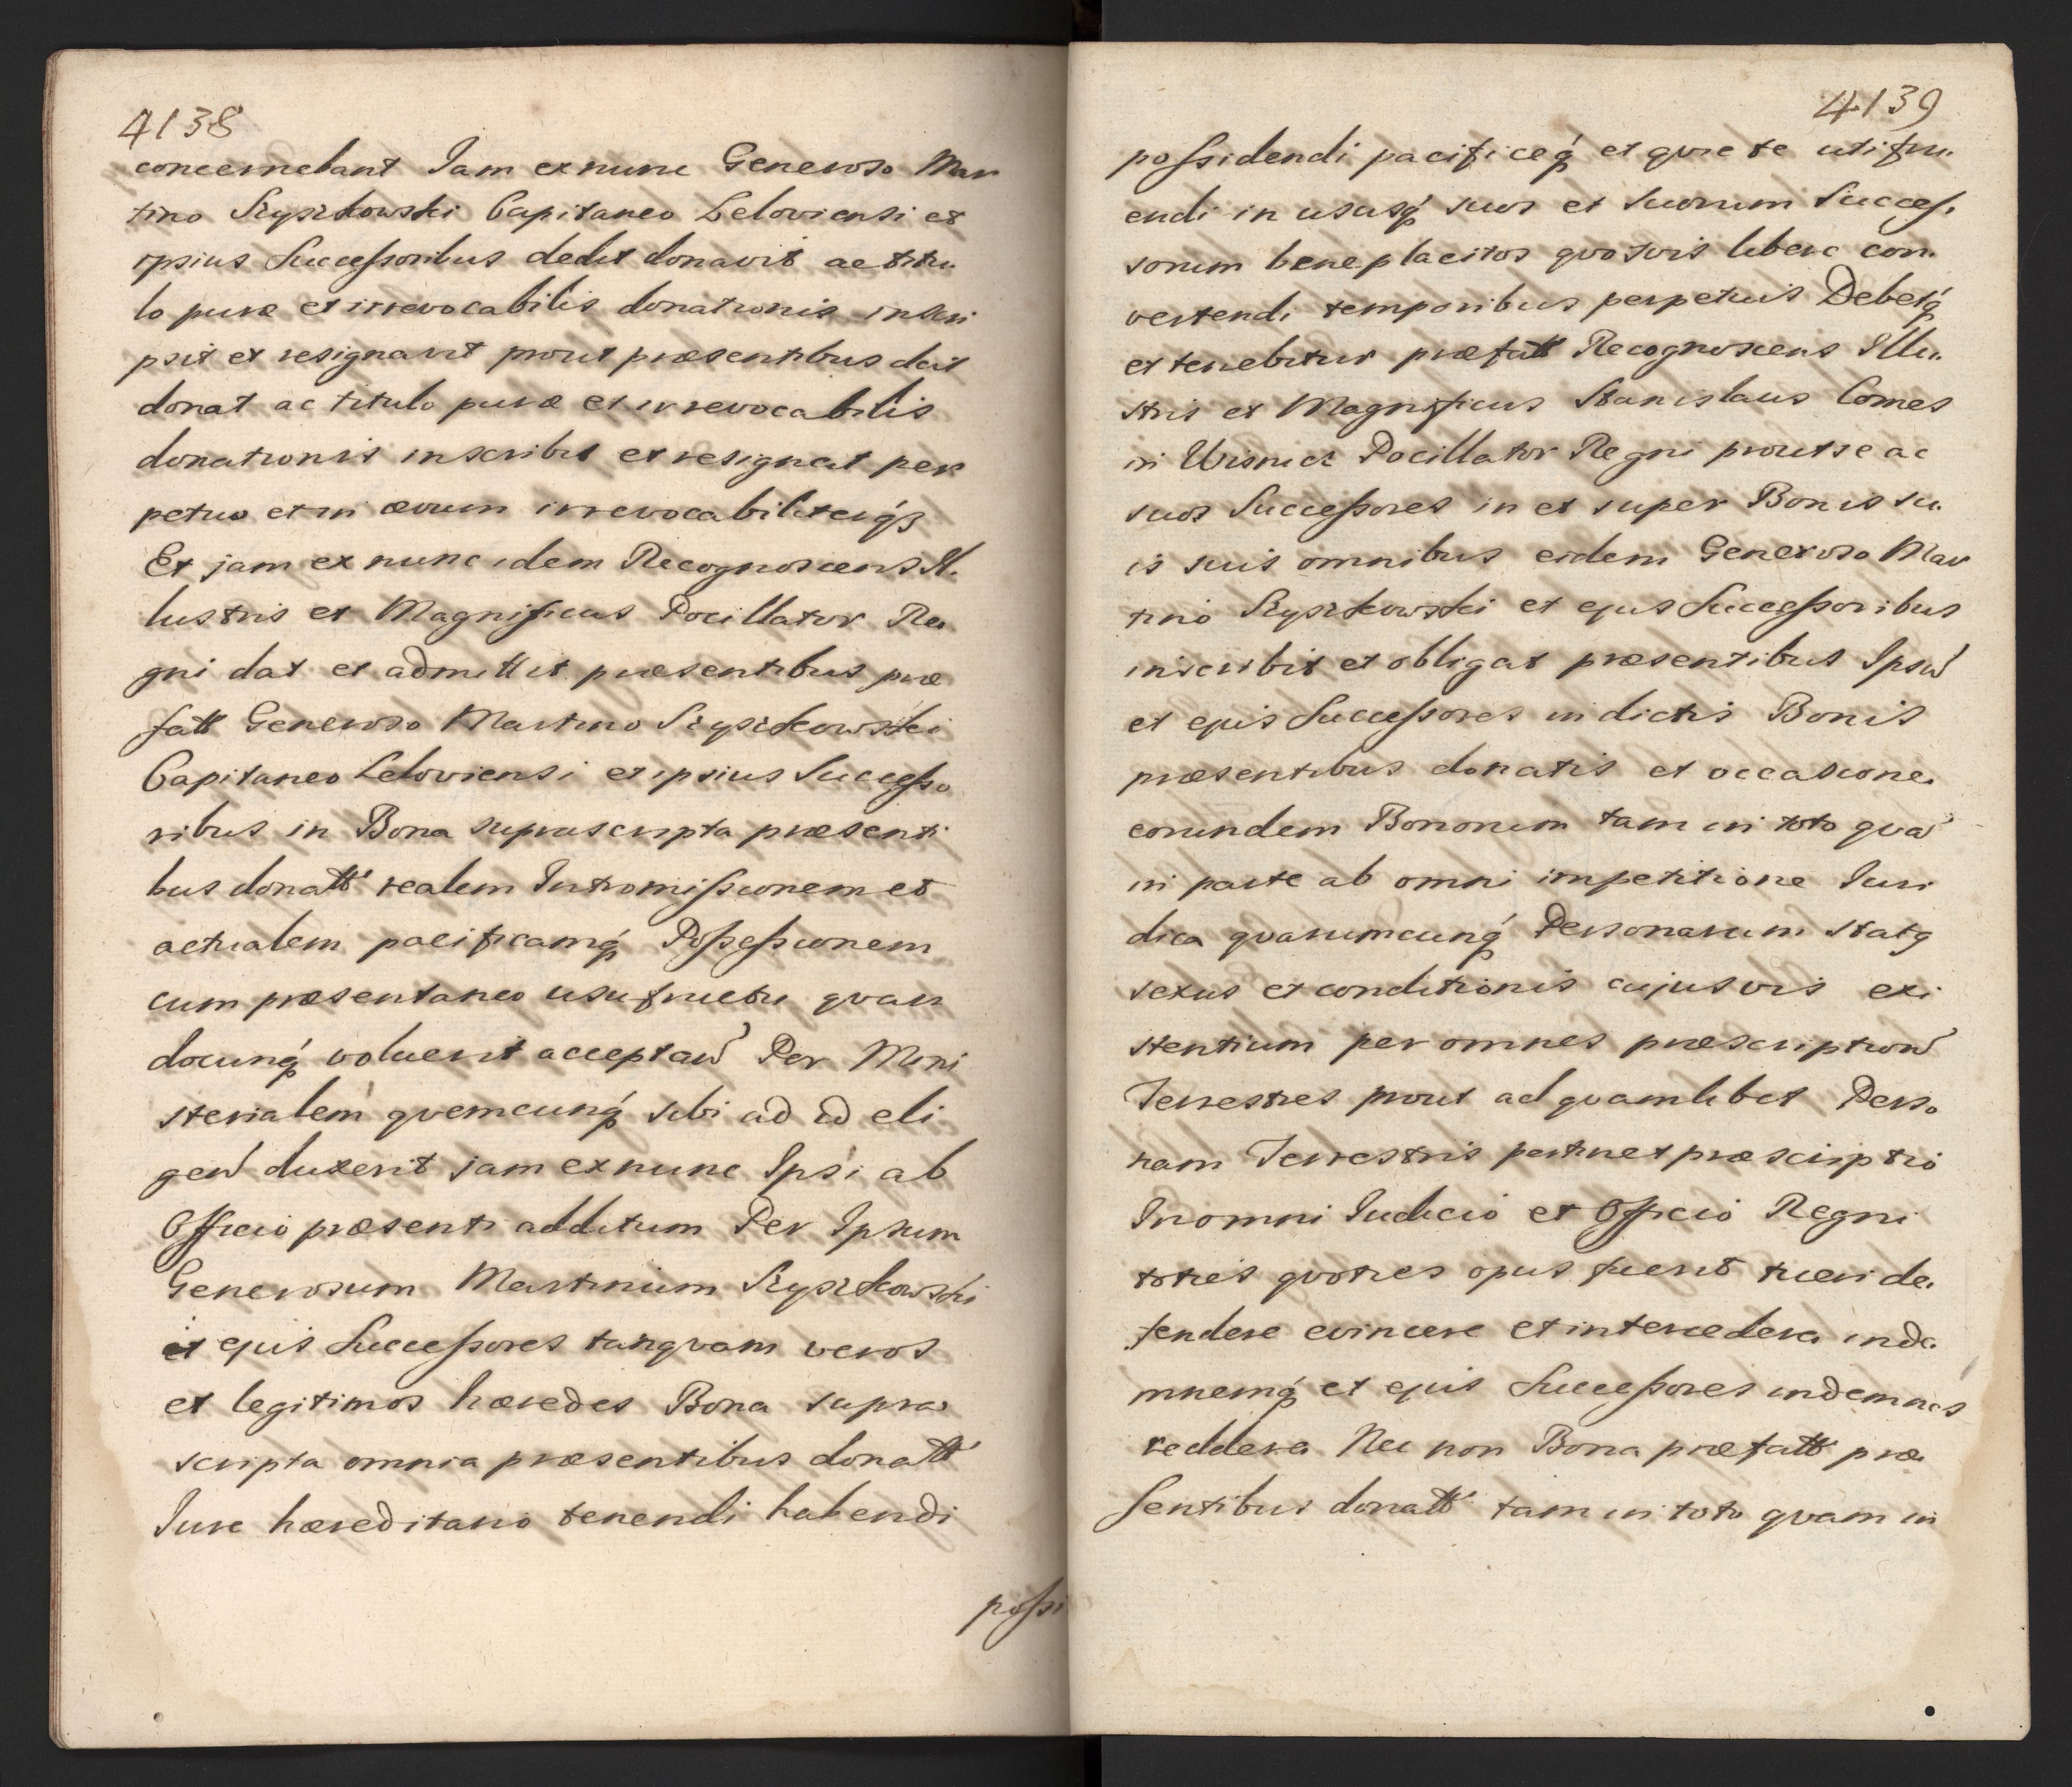 4138
concernebant Jam ex nunc Generoso Mar
tino Szyszkowski Capitaneo Leloviensi et
ipsius Successoribus dedit donavit ac titu
lo puræ et irrevocabilis donationis inscri
psit et resignavit prout præsentibus dat
donat ac titulo puræ et irrevocabilis
donationis inscribit et resignat per
petuo et in ævum irrevocabiliterqꝫ
Et jam ex nunc idem Recognoscens Il.
lustris et Magnificus Pocillator Re.
gni dat et admittit præsentibus præ
fatt Generoso Martino Szyszkowski
Capitaneo Leloviensi et ipsius Successo
ribus in Bona suprascripta præsenti
bus donatt realem Intromissionem et
actualem pacificamq́ Possessionem
cum præsentaneo usufructu quan
docunq́ voluerit acceptan̄ Per Mini
sterialem quemcunq́ sibi ad id eli
gen̄ duxerit jam ex nunc Ipsi ab
Officio præsenti additum Per Ipsum
Generosum Martinum Szyszkowski
et ejus Successores tanquam veros
et legitimos hæredes Bona supra
scripta omnia præsentibus donatt
Jure hæreditario tenendi habendi
possi
4139
possidendi pacificeq́ et quiete utifru.
endi in ususq́ suos et suorum Succes.
sorum beneplacitos quosvis libere con.
vertendi temporibus perpetuis Debetq́
et tenebitur præfatt Recognoscens Illu.
stris et Magnificus Stanislaus Comes
in Wisnicz Pocillator Regni prout se ac
suos Successores in et super Bonis su.
is suis omnibus eidem Generoso Mar
tino Szyszkowski et ejus Successoribus
inscribit et obligat præsentibus Ipsū
et ejus Successores in dictis Bonis
præsentibus donatis et occasione
eorundem Bonorum tam in toto quā
in parte ab omni impetitione Juri
dica quarumcunq́ Personarum statq
sexus et conditionis cujusvis exi
stentium per omnes præscription̄
Terrestres prout ad quamlibet Perso
nam Terrestris pertinet præscriptio
In omni Judicio et Officio Regni
toties quoties opus fuerit tueri de.
fendere evincere et intercedere inde.
mnemq́ et ejus Successores indemnes
reddere Nec non Bona præfatt præ
sentibus donatt tam in toto quam in